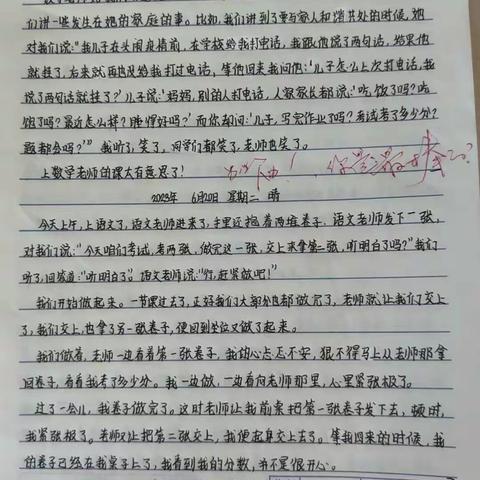 们讲一些发生在她的家庭的事。比如,我们讲到了要与家人和谐共处的时候,她
对我们说:“我儿子在头闹疫情前,在学校给我打电话,我跟他说了两句话,结果他
就挂了,后来就再也没给我打过电话,等他回来我问他:‘儿子怎么上次打电话,我
说了两句话就挂了?’儿子说:‘妈妈,别的人打电话,人家家长都说:吃饭了吗?吃
饱了吗?最近怎么样?睡得好吗?而你却问:儿子,写完作业了吗?考试考了多少分?
题都会吗?’”我听了,笑了,同学们都笑了,老师也笑了。
上数学老师的课太有意思了!
2023年 6月20日 星期二 晴
今天上午,上语文了,语文老师进来了,手里还抱着两堆卷子,语文老师发下一张,
对我们说:“今天咱们考试,考两张,做完这一张,交上来拿第二张,听明白了吗?”我们
听了,回答道:“听明白了”。语文老师说:“行,赶紧做吧!”
我们开始做起来。一节课过去了,正好我们大部分也都做完了,老师就让我们交上
了,我们交上,也拿了另一张卷子,便回到坐位又做了起来。
我们做着,老师一边看着第一张卷子,我的心忐忑不安,狠不得马上从老师那拿
回卷子,看看我考了多少分。我一边做,一边看向老师那里,心里紧张极了。
过了一会儿,我卷子做完了。这时老师让我前桌把第一张卷子发下去,顿时,
我紧张极了。老师又让把第二张交上,我便起身交上去了。等我回来的时候,我
的卷子已经在我桌子上了,我看到我的分数,并不是很开心。